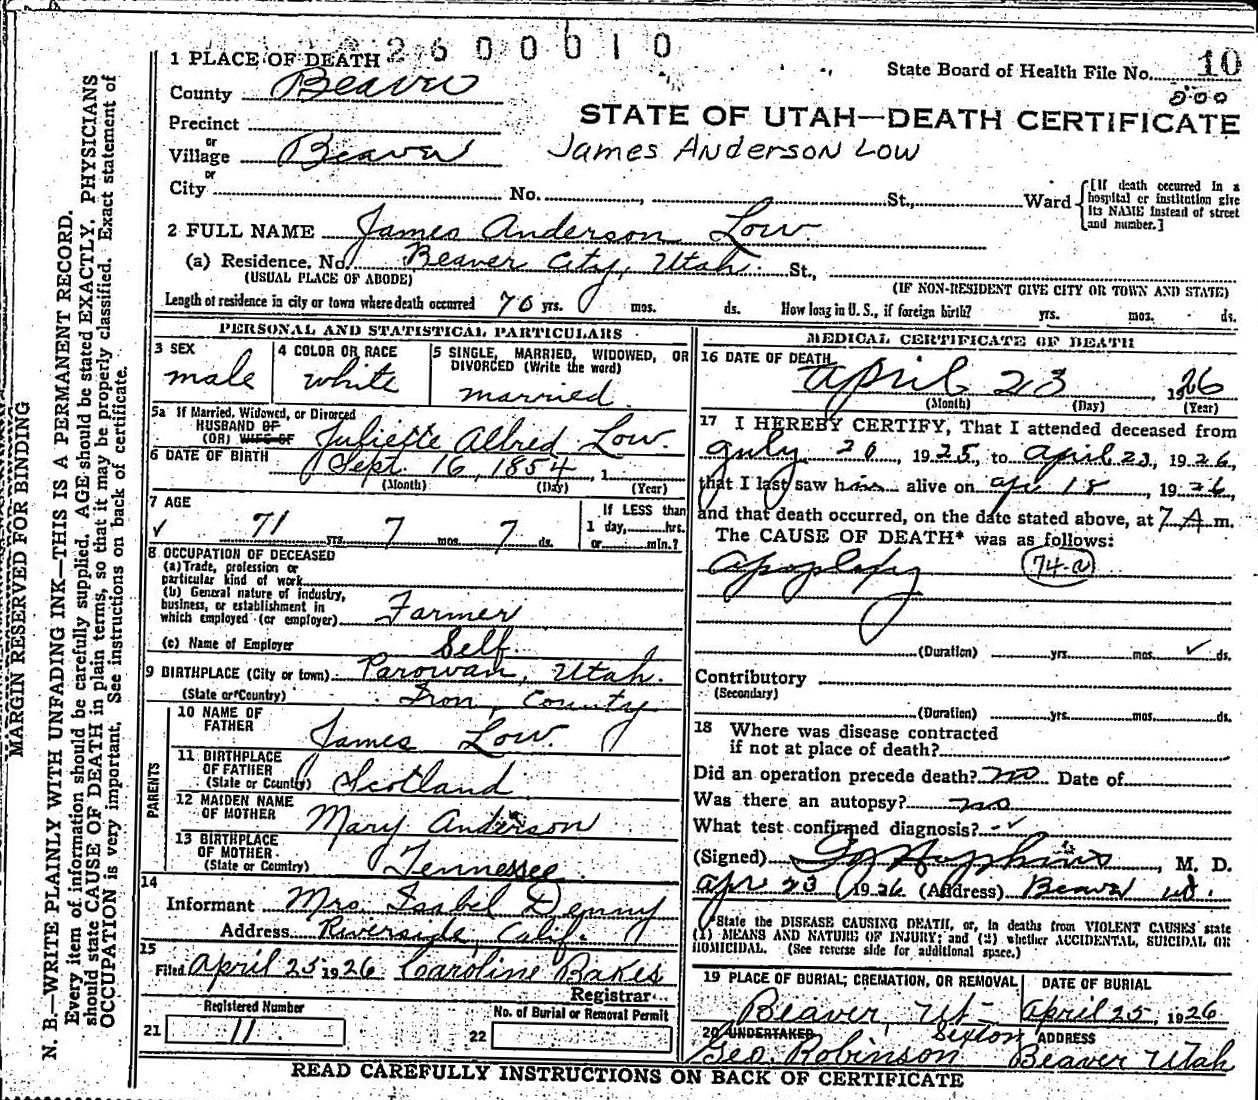 2600010
1 PLACE OF DEATH
State Board of Health File No. 10
County Beaver
500
STATE OF UTAH—DEATH CERTIFICATE
Precinct
or
Village Beaver
James Anderson Low
or
City No. , St., Ward
[If death occurred in a hospital or institution give its NAME instead of street and number.]
2 FULL NAME James Anderson Low.
(a) Residence. No. Beaver City, Utah. St.,
(USUAL PLACE OF ABODE) (IF NON-RESIDENT GIVE CITY OR TOWN AND STATE)
Length of residence in city or town where death occurred 70 yrs. mos. ds. How long in U. S., if foreign birth? yrs. mos. ds.
PERSONAL AND STATISTICAL PARTICULARS
3 SEX
male
4 COLOR OR RACE
white
5 SINGLE, MARRIED, WIDOWED, OR
DIVORCED (Write the word)
married.
5a If Married, Widowed, or Divorced
HUSBAND OF
(OR) WIFE OF Juliette Allred Low.
6 DATE OF BIRTH Sept. 16, 1854, 1
(Month) (Day) (Year)
7 AGE
✓ 71 yrs. 7 mos. 7 ds.
If LESS than
1 day, hrs.
or min.?
8 OCCUPATION OF DECEASED
(a) Trade, profession or
particular kind of work
(b) General nature of industry,
business, or establishment in
which employed (or employer) Farmer
(c) Name of Employer Self
9 BIRTHPLACE (City or town) Parowan, Utah.
(State or Country) Iron, County
PARENTS
10 NAME OF
FATHER James Low.
11 BIRTHPLACE
OF FATHER
(State or Country) Scotland
12 MAIDEN NAME
OF MOTHER Mary Anderson
13 BIRTHPLACE
OF MOTHER
(State or Country) Tennessee.
14
Informant Mrs. Isabel Denny
Address Riverside, Calif.
15
Filed April 25 1926 Caroline Bakes
Registrar
Registered Number
21 11.
No. of Burial or Removal Permit
22
MEDICAL CERTIFICATE OF DEATH
16 DATE OF DEATH
April 23, 1926
(Month) (Day) (Year)
17 I HEREBY CERTIFY, That I attended deceased from
July 20, 1925, to April 23, 1926,
that I last saw him alive on apr 18, 1926,
and that death occurred, on the date stated above, at 7 A m.
The CAUSE OF DEATH* was as follows:
apoplexy 74-a
(Duration) yrs. mos. ✓ ds.
Contributory
(Secondary)
(Duration) yrs. mos. ds.
18 Where was disease contracted
if not at place of death?
Did an operation precede death? no Date of
Was there an autopsy? no
What test confirmed diagnosis? -✓
(Signed) , M. D.
apr 23 1926 (Address) Beaver Ut.
*State the DISEASE CAUSING DEATH, or, in deaths from VIOLENT CAUSES state
(1) MEANS AND NATURE OF INJURY; and (2) whether ACCIDENTAL, SUICIDAL OR
HOMICIDAL. (See reverse side for additional space.)
19 PLACE OF BURIAL; CREMATION, OR REMOVAL
Beaver, Ut-
DATE OF BURIAL
April 25, 1926
20 UNDERTAKER Sexton
Geo. Robinson
ADDRESS
Beaver Utah
READ CAREFULLY INSTRUCTIONS ON BACK OF CERTIFICATE
MARGIN RESERVED FOR BINDING
N. B.—WRITE PLAINLY WITH UNFADING INK—THIS IS A PERMANENT RECORD.
Every item of information should be carefully supplied. AGE should be stated EXACTLY. PHYSICIANS
should state CAUSE OF DEATH in plain terms, so that it may be properly classified. Exact statement of
OCCUPATION is very important. See instructions on back of certificate.